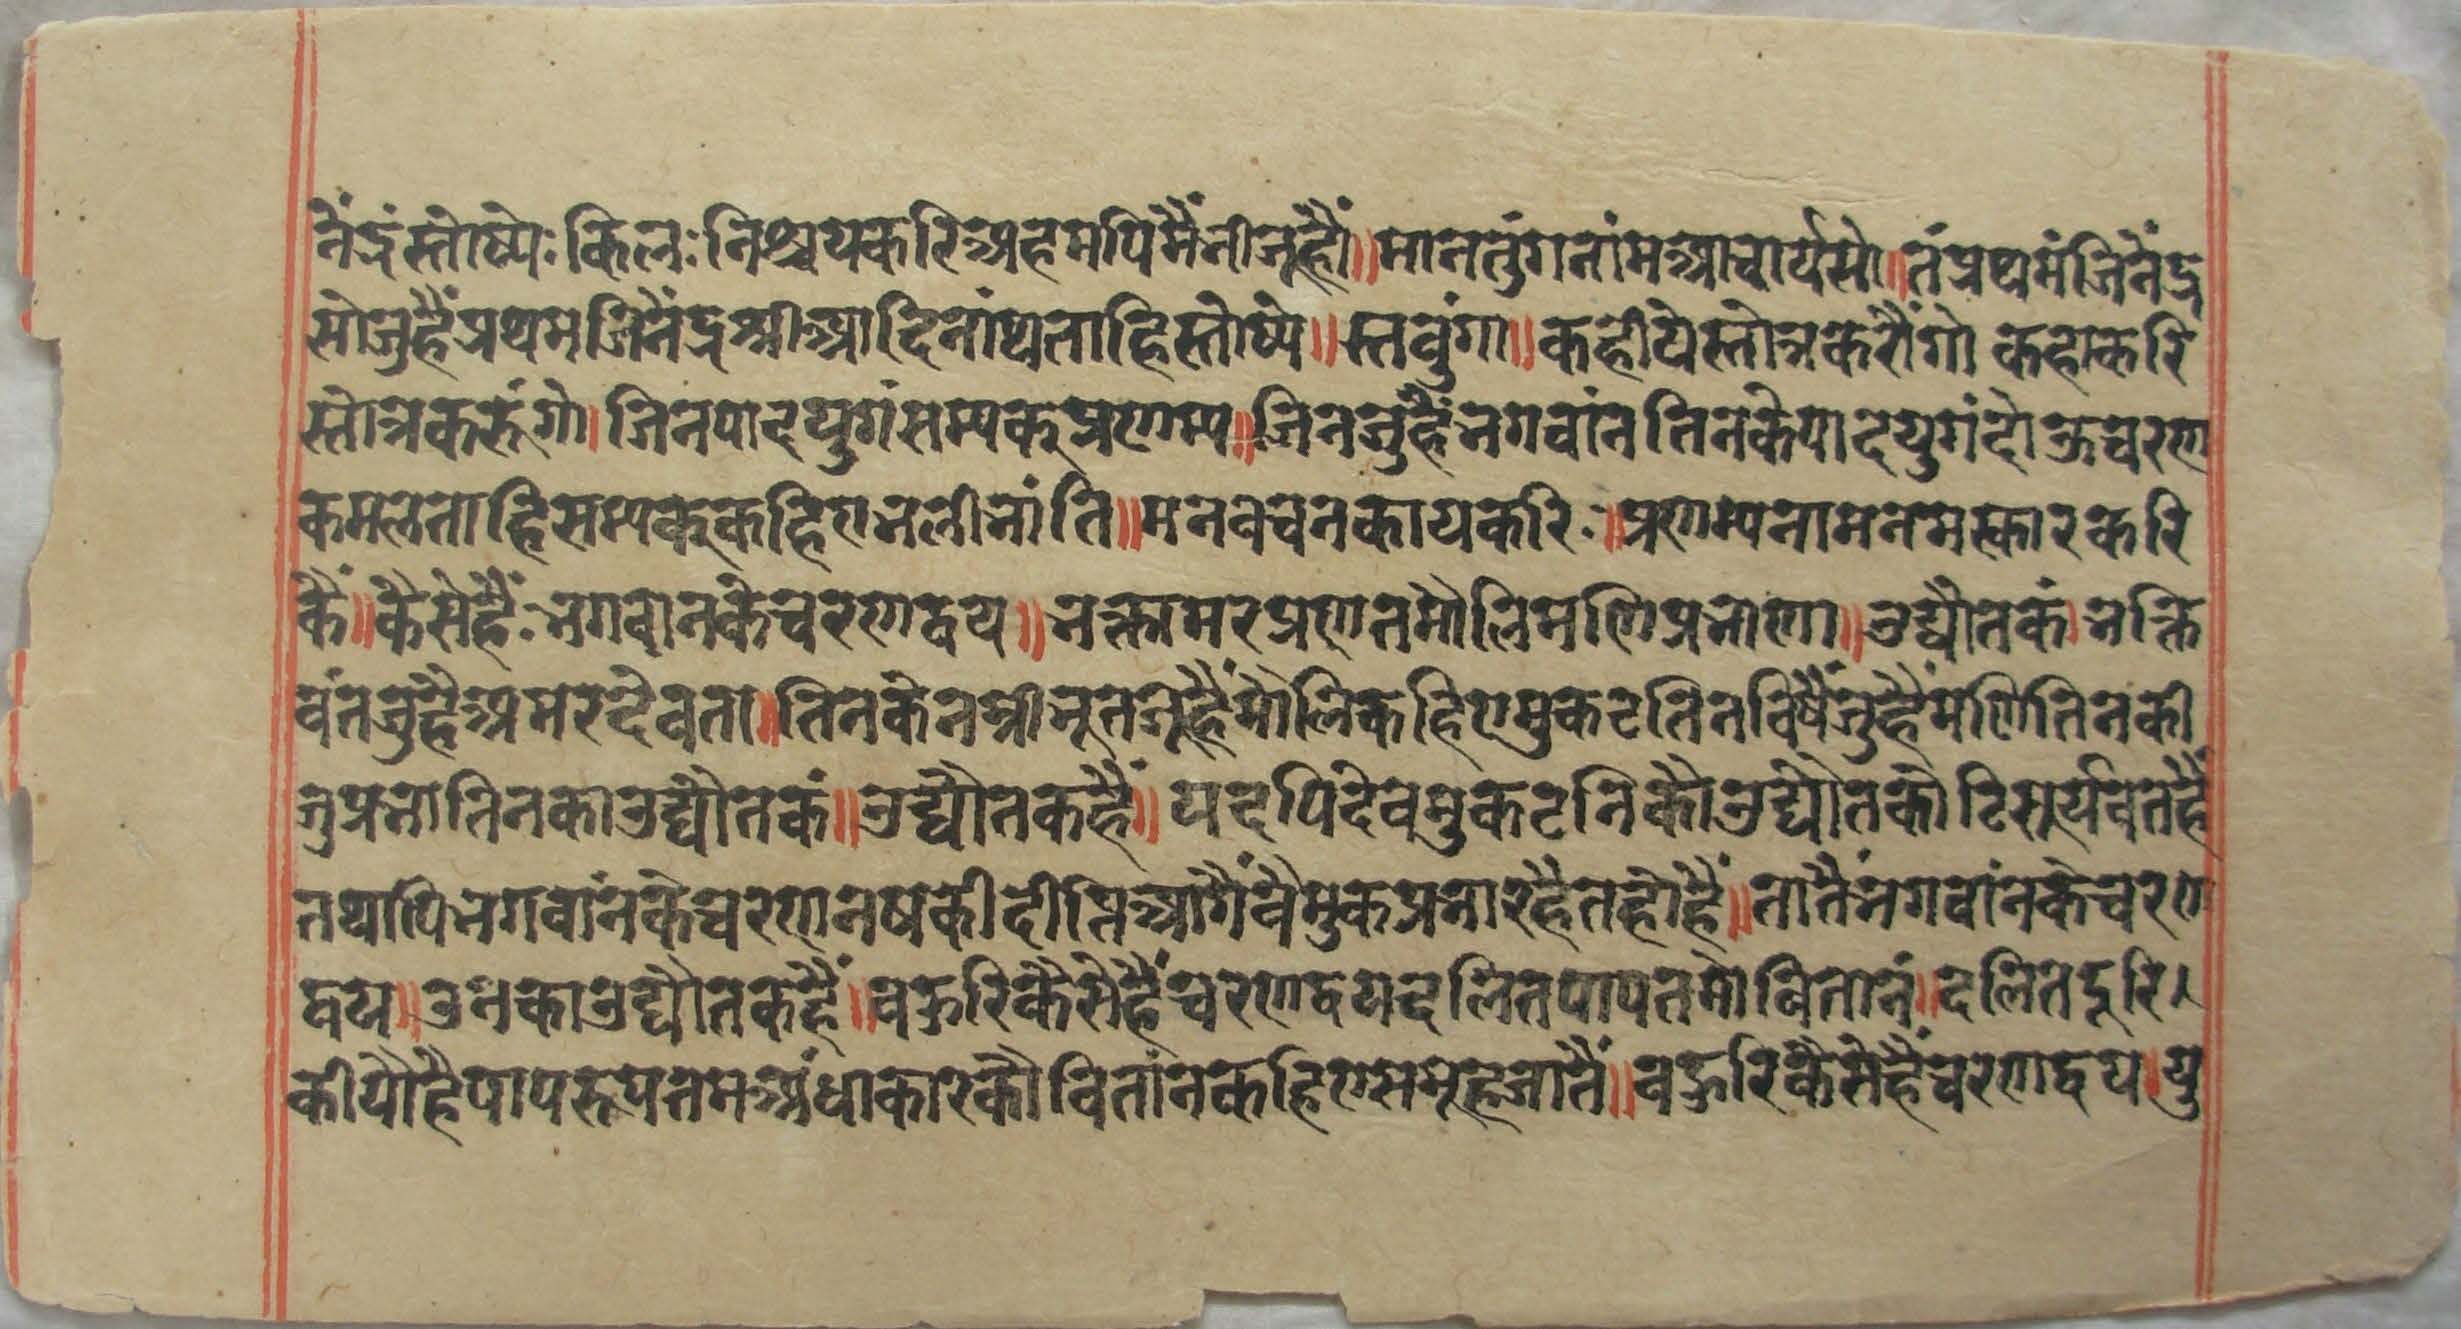 नेंद्रंस्तोष्पेः किलः निश्चयकरिअहमपिमैंभीजूहौं॥मानतुंगनांमआचार्यसो॥तंप्रथमंजिनेंद्र
सोजुहैंप्रथमजिनेंद्रश्रीआदिनांथताहिस्तोष्पे॥स्तवुंगा॥कहीयेस्तोत्रकरौंगो कहाकरि
स्तोत्रकरूंगो।जिनपादयुगंसम्पक्प्रणम्प॥जिनजुहैंभगवांनतिनकेपादयुगंदोऊचरण
कमलताहिसम्पक्कहिएभलीभांति॥मनवचनकायकरि॥प्रणम्पनामनमस्कारकरि
कैं॥कैसेहैंभगवानकेचरणद्वय॥भक्तामरप्रणतमौलिमणिप्रभाणा॥उद्योतकं।भक्ति
वंतजुहैअमरदेवता॥तिनकेनम्रीभूतजूहैंमौलिकहिएमुकटतिनविषैंजुहैंमणितिनकी
जुप्रभातिनकाउद्योतकं॥उद्योतकहैं॥यदपिदेवमुकटनिकौउद्योतकोटिसूर्यवतहैं
तथापिभगवांनकेचरणनषकीदीप्तिआगैंवैमुकप्रभारहैतहोहैं॥तातैंभगवांनकेचरण
द्वय॥उनकाउद्योतकहैं॥बहुरिकैसेहैंचरणद्वयदलितपापतमोवितानं॥दलितदूरि।
कीयौहैपापरूपतमअंधाकारकौवितांनकहिएसमूहजातैं॥बहुरिकैसेहैंचरणद्वय।यु